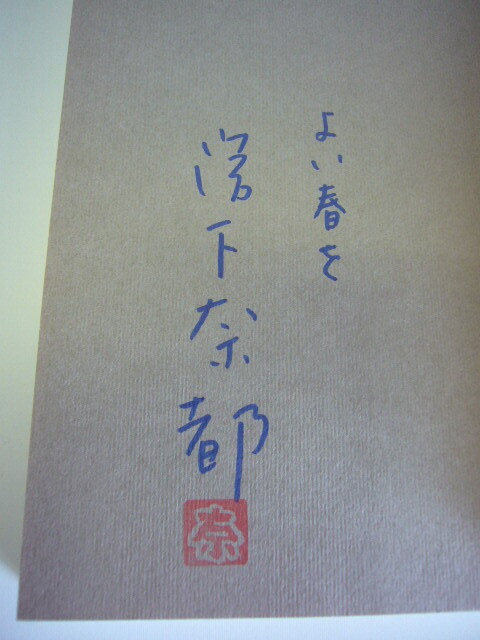 よい春を
宮下奈都
奈